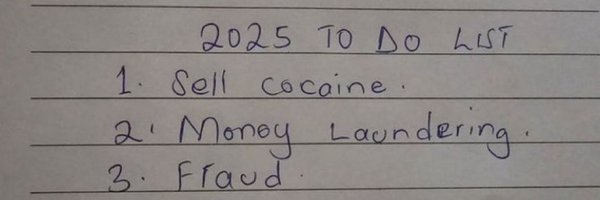 2025 TO DO LIST
1. Sell cocaine.
2. Money Laundering.
3. Fraud.